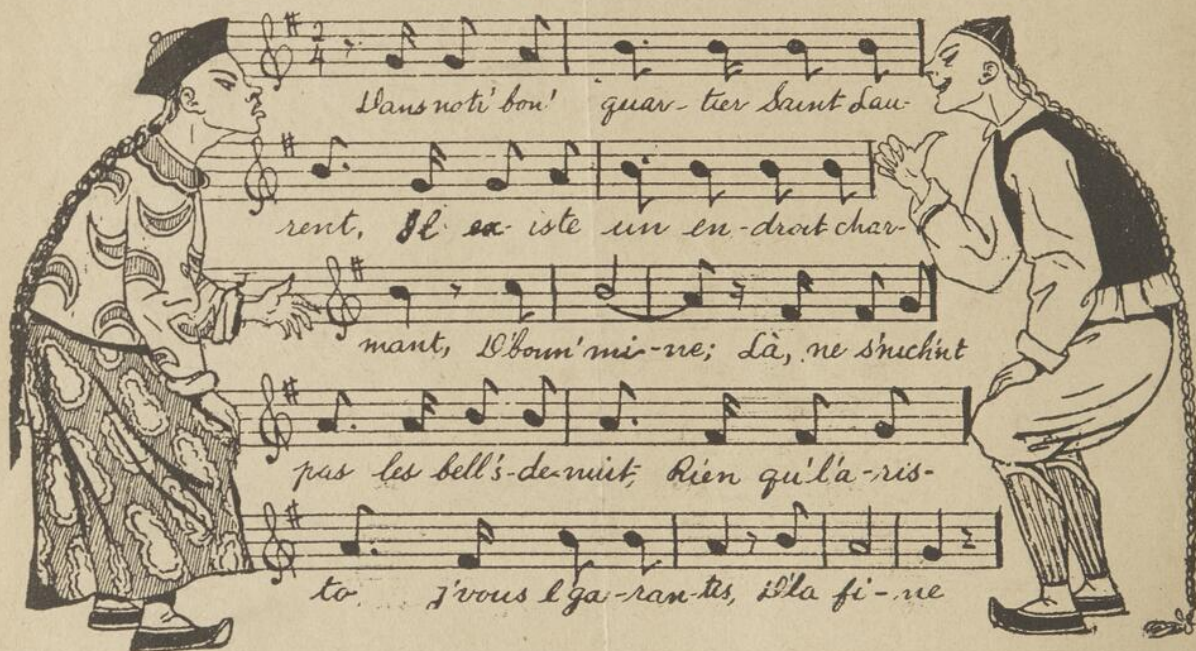 2
4
Dans notr' bon' quar-tier Saint Lau-
rent, Il ex-iste un en-droit char-
mant, D'bonn' mi-ne; Là, ne s'nich'nt
pas les bell's-de-nuit, Rien qu'l'a-ris-
to j'vous l'ga-ran-tis, D'la fi-ne